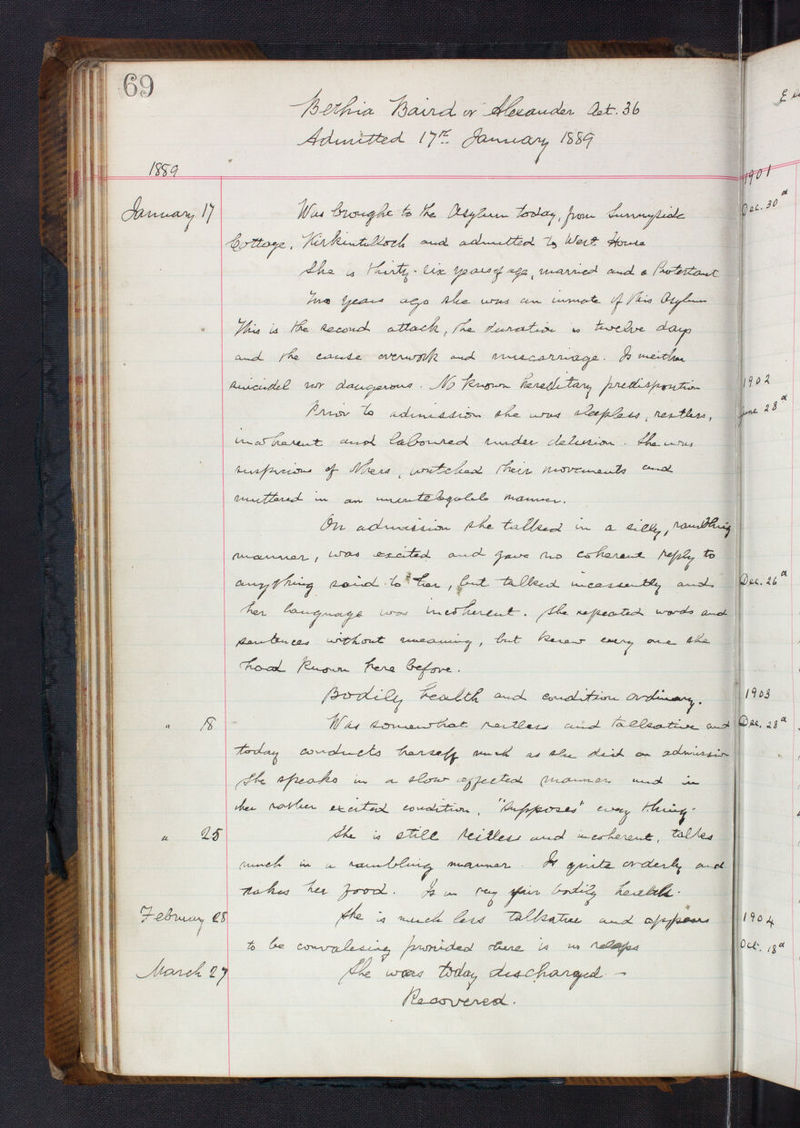 69
Bethia Baird or Alexander Aet. 36
Admitted 17th January 1889
1889
January 17 Was brought to the Asylum today, from Sunnyside
Cottage, Kirkintilloch and admitted to West House
She is thirty-six years of age, married and a Protestant
Two years ago she was an inmate of this Asylum
This is the second attack, the duration is twelve days
and the cause overwork and miscarriage. Is neither
suicidal nor dangerous. No known hereditary predisposition
Prior to admission she was sleepless, restless,
incoherent and laboured under delusion. She was
suspicious of others, watched their movements and
muttered in an manner.
On admission she talked in a silly, rambling
manner, was excited and gave no coherent reply to
anything said to her, but talked incessantly and
her language was incoherent. She repeated words and
sentences without meaning, but knew every one she
had known here before.
Bodily health and condition ordinary.
" 18 Was somewhat restless and talkative and
today conducts herself much as she did on admission
She speaks in a slow affected manner and in
her rather excited condition, "supposes" every thing.
" 25 She is still restless and incoherent, talks
much in a rambling manner. Is quite orderly and
takes her food. Is in very fair bodily health.
February 28 She is much less talkative and appears
to be convalescing provided there is no relapse
March 27 She was today discharged –
Recovered.
1901
Dec. 30
1902
June 28
Dec. 26
1903
Dec. 28
1904
Oct. 18